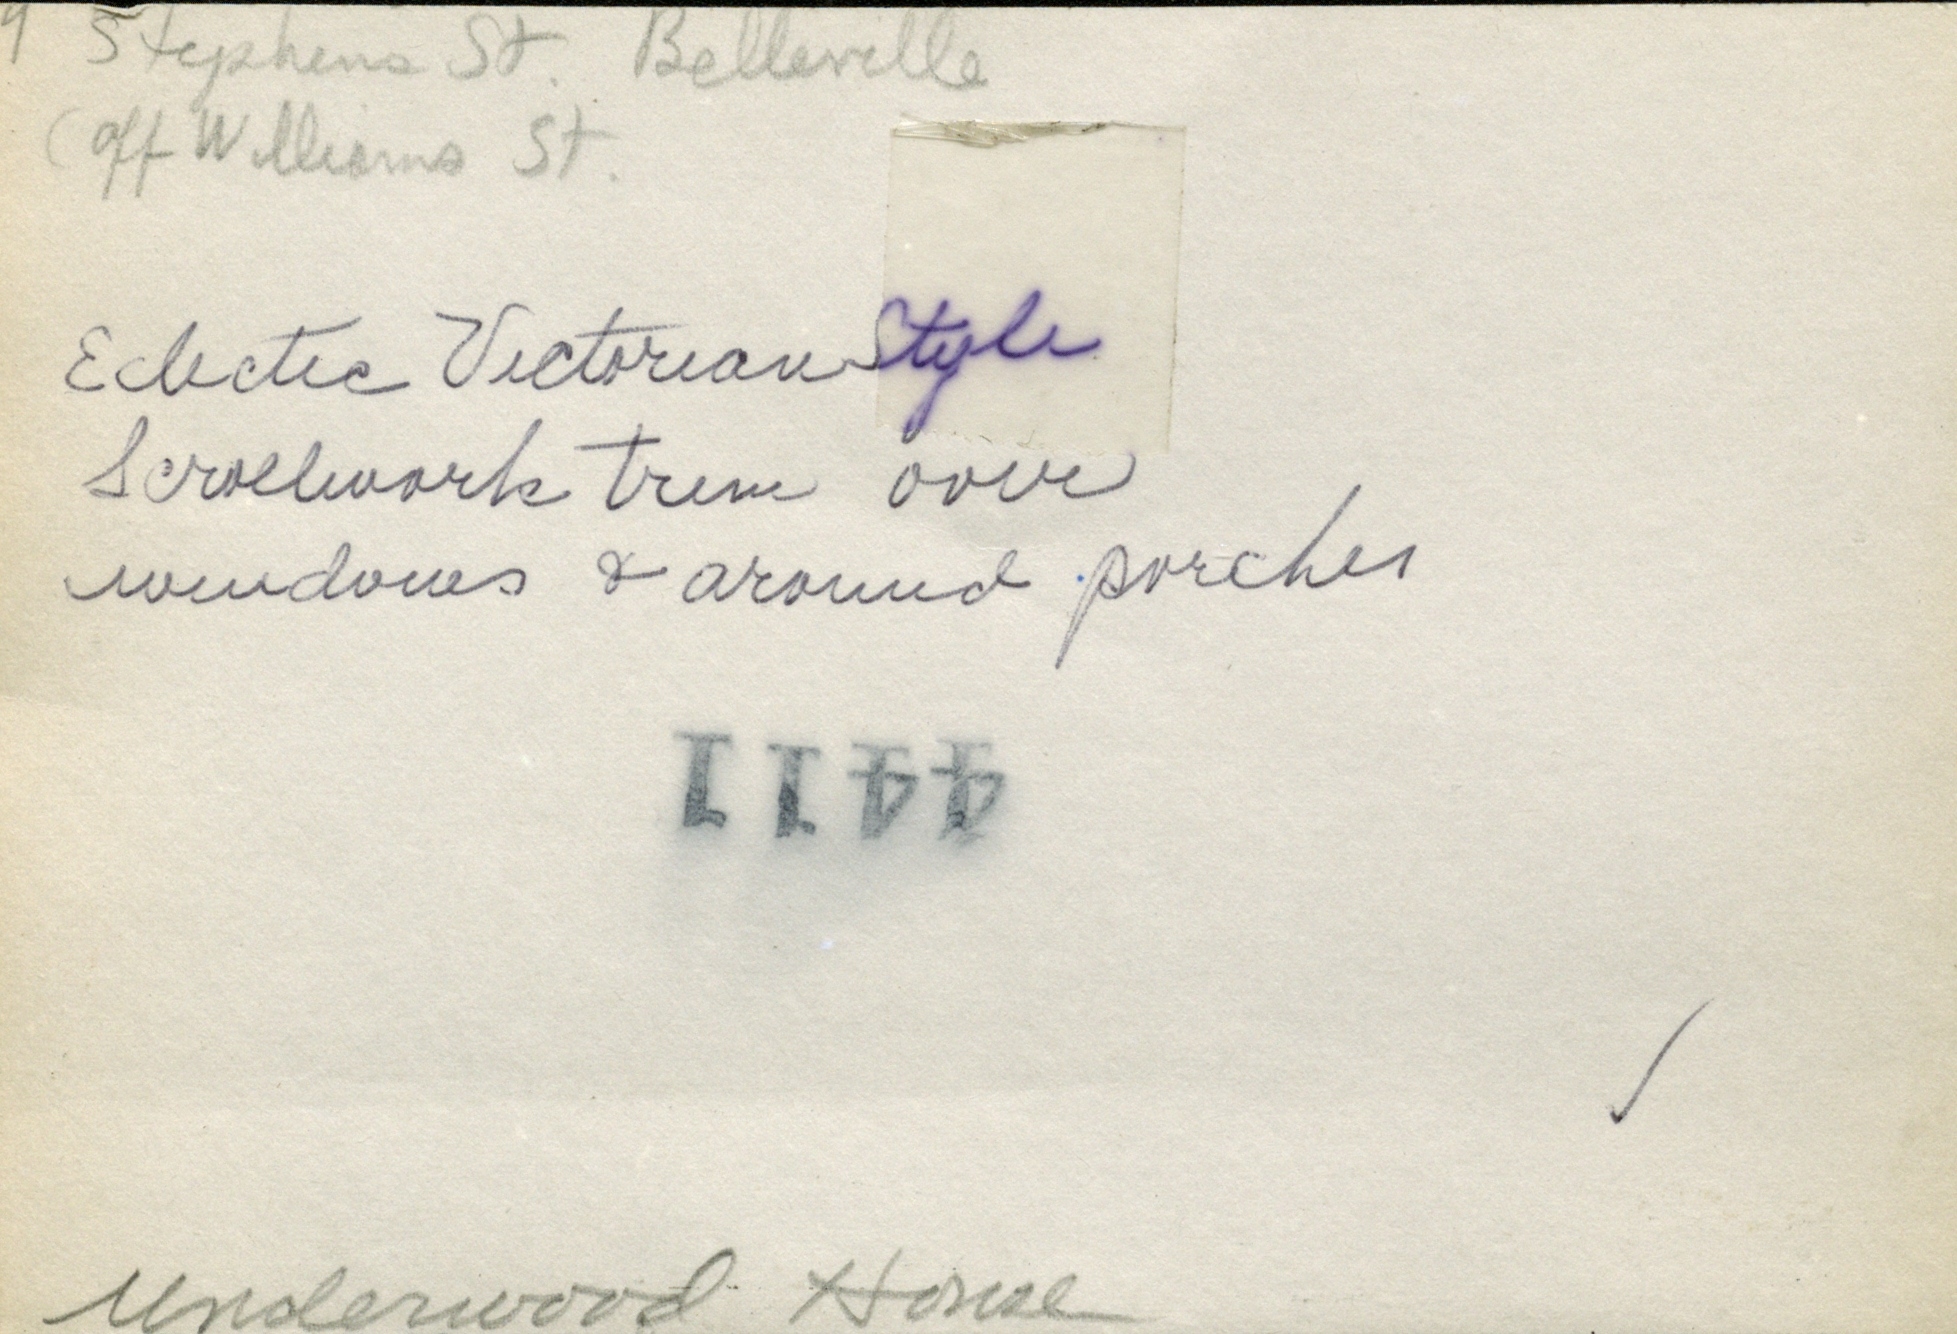 9 Stephens St. Belleville
(off Williams St.
Eclectic Victorian Style
Scrollwork trim over
windows & around porches
4411
Underwood House